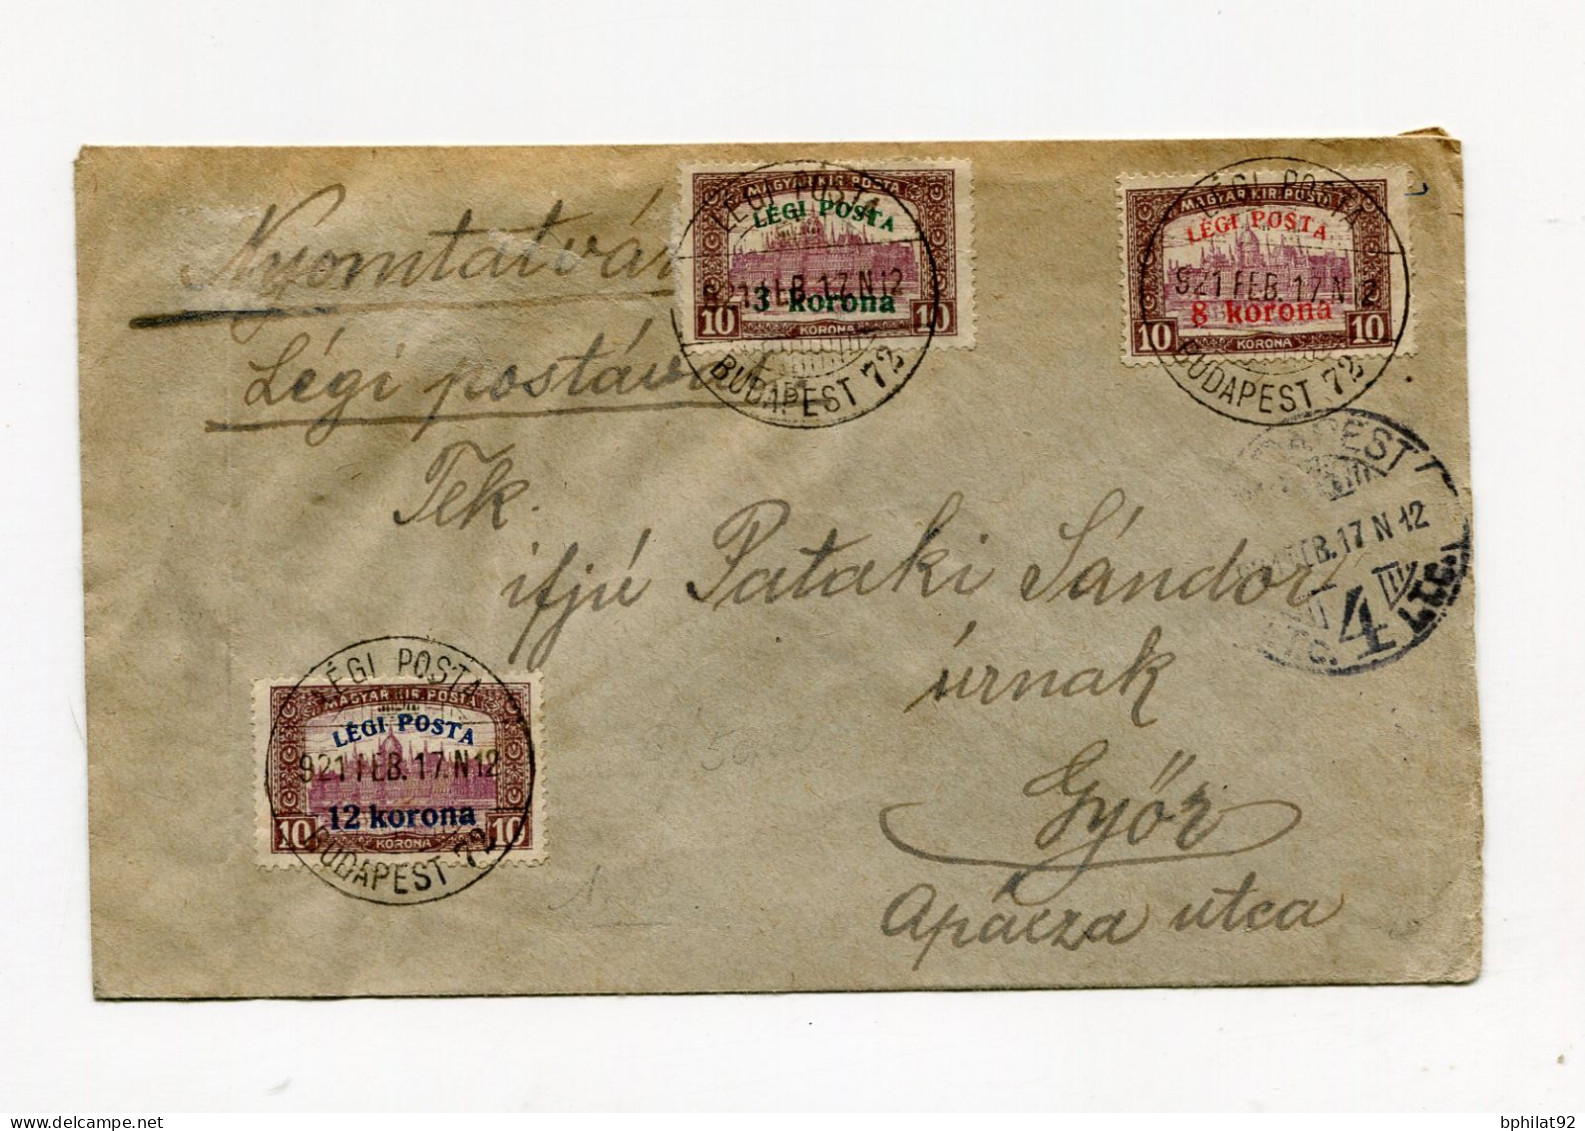 Nyomtatvány
Légi postával
Tek.
ifjú Pataki Sándor
úrnak
Győr
Apácza utca
MAGYAR KIR. POSTA
LÉGI POSTA
3 korona
10 KORONA 10
LÉGI POSTA
921 FEB. 17. N 12
BUDAPEST 72
MAGYAR KIR. POSTA
LÉGI POSTA
8 korona
10 KORONA 10
LÉGI POSTA
921 FEB. 17. N 12
BUDAPEST 72
BUDAPEST
FEB. 17 N 12
4
MAGYAR KIR. POSTA
LÉGI POSTA
12 korona
10 KORONA 10
LÉGI POSTA
921 FEB. 17. N 12
BUDAPEST 72
bphilat92